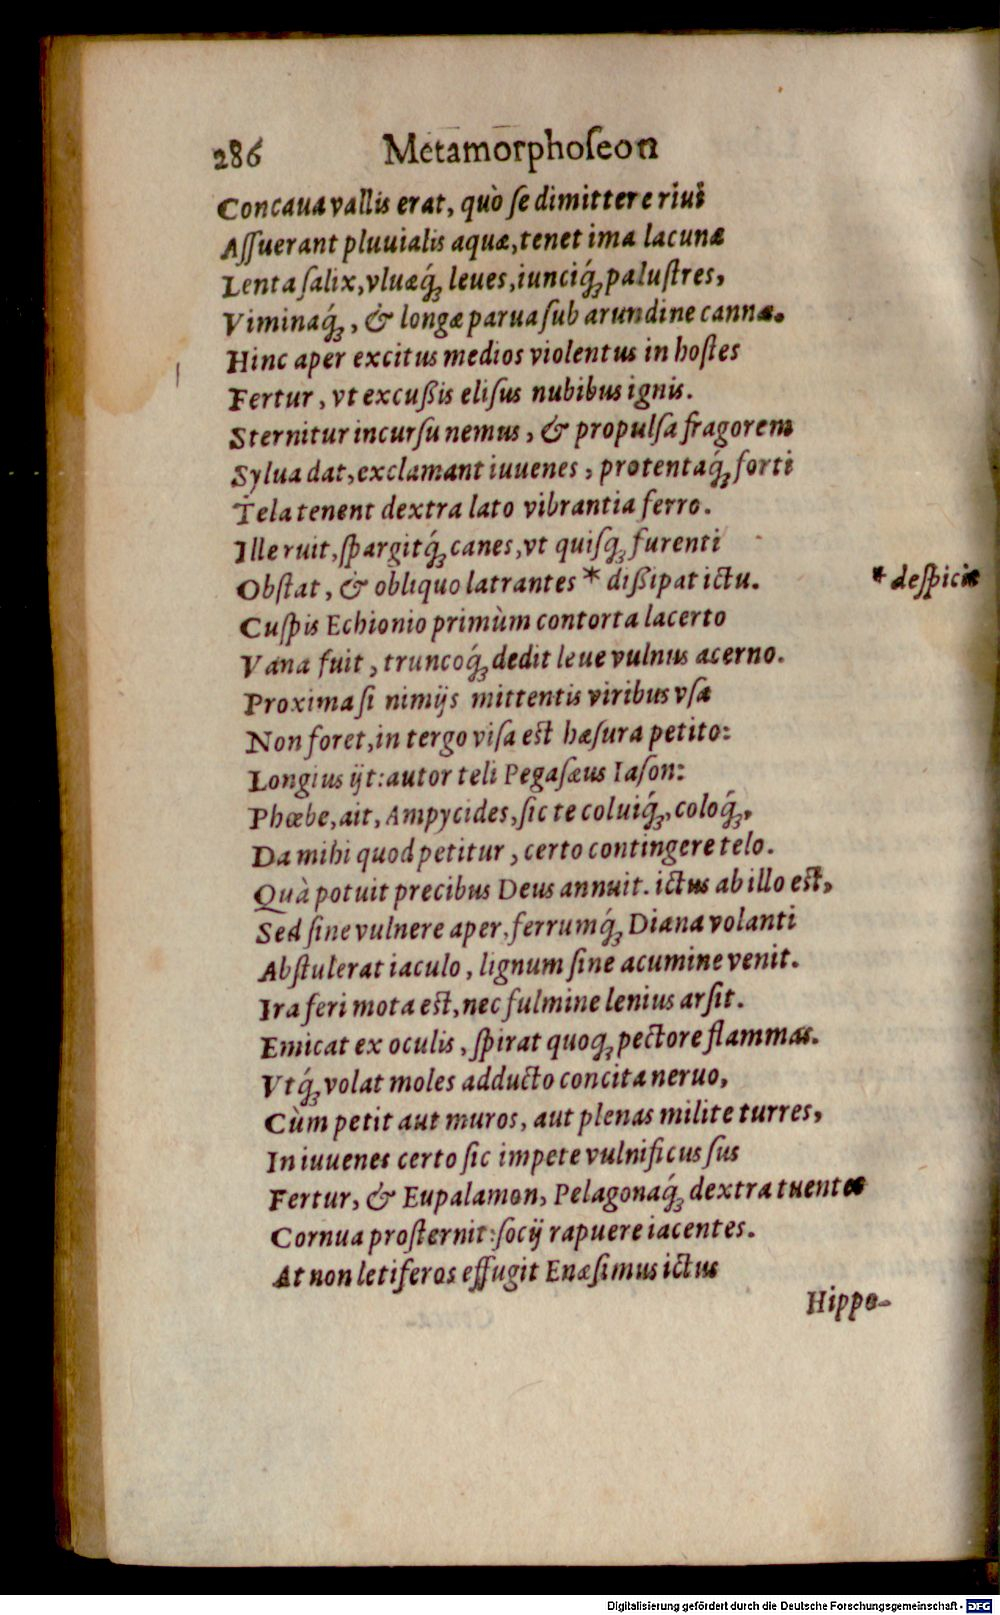 286 Metamorphoſeon
Concaua vallis erat, quò ſe dimittere riui
Aſſuerant pluuialis aquæ, tenet ima lacunæ
Lenta ſalix, vluæq́; leues, iunciq́; paluſtres,
Viminaq́;, & longæ parua ſub arundine cannæ.
Hinc aper excitus medios violentus in hoſtes
Fertur, vt excußis eliſus nubibus ignis.
Sternitur incurſu nemus, & propulſa fragorem
Sylua dat, exclamant iuuenes, protentaq́; forti
Tela tenent dextra lato vibrantia ferro.
Ille ruit, ſpargitq́; canes, vt quiſq; furenti
Obſtat, & obliquo latrantes * dißipat ictu. * deſpicit
Cuſpis Echionio primùm contorta lacerto
Vana fuit, truncoq́; dedit leue vulnus acerno.
Proxima ſi nimijs mittentis viribus vſa
Non foret, in tergo viſa eſt hæſura petito:
Longius ijt: autor teli Pegaſæus Iaſon:
Phœbe, ait, Ampycides, ſic te coluiq́;, coloq́;,
Da mihi quod petitur, certo contingere telo.
Quà potuit precibus Deus annuit. ictus ab illo eſt,
Sed ſine vulnere aper, ferrumq́; Diana volanti
Abſtulerat iaculo, lignum ſine acumine venit.
Ira feri mota eſt, nec fulmine lenius arſit.
Emicat ex oculis, ſpirat quoq; pectore flammas.
Vtq́; volat moles adducto concita neruo,
Cùm petit aut muros, aut plenas milite turres,
In iuuenes certo ſic impete vulnificus ſus
Fertur, & Eupalamon, Pelagonaq́; dextra tuentes
Cornua proſternit: ſocij rapuere iacentes.
At non letiferos effugit Enæſimus ictus
Hippo-
Digitalisierung gefördert durch die Deutsche Forschungsgemeinschaft - DFG